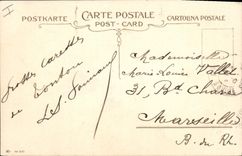 I
CARTE POSTALE
POSTKARTE
POST-CARD
CARTOLINA POSTALE
Grosses caresses
de Tonton
Mademoiselle
Marie Louise Vallet
31, Bd Chave
Marseille
B. du Rh.